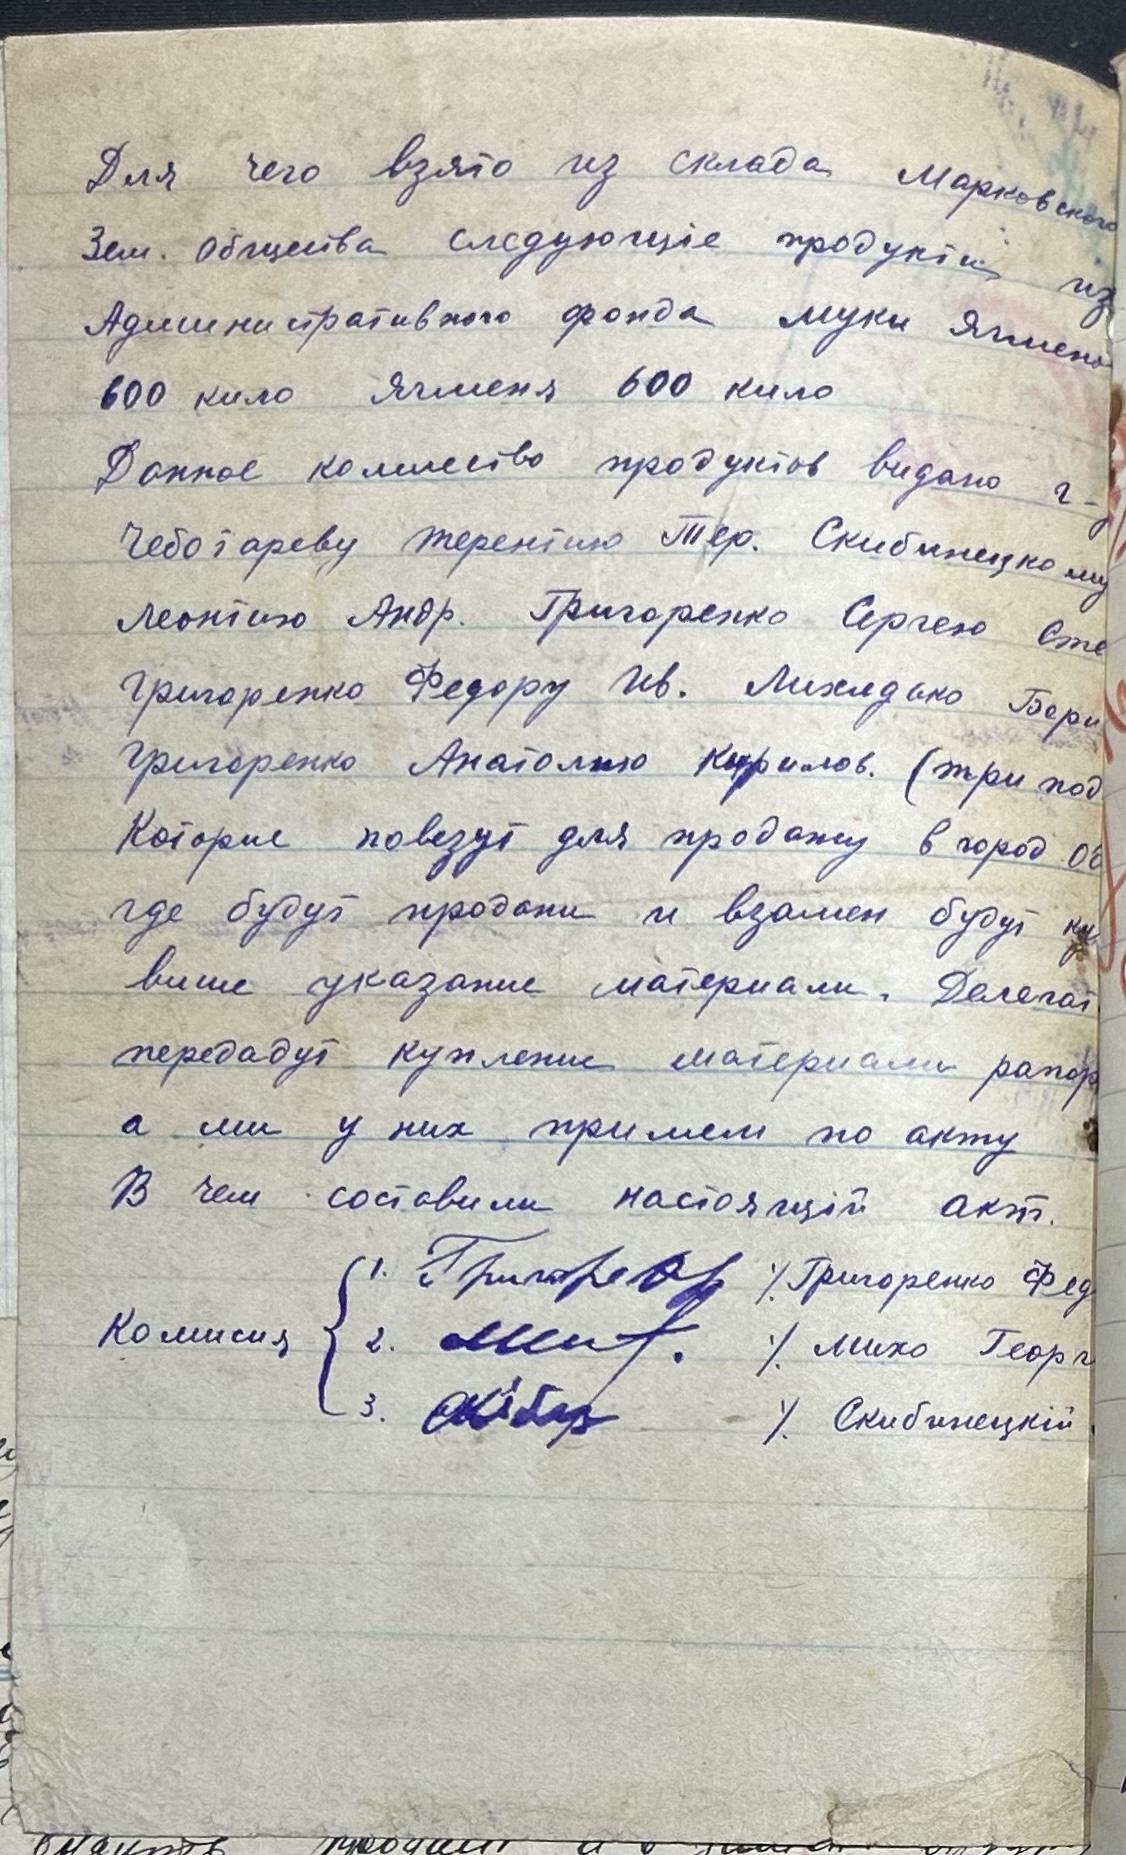 Для чего взято из склада Марковского
Зем. Общества следующіе продукти из
Административного фонда муки Ячмено
600 кило Ячменя 600 кило
Данное количество продуктов видано г-
Чеботареву Терентию Тер. Скибинецкому
Леонтию Андр. Григоренко Сергею Сте
Григоренко Федору Ив. Лихлядько Бори
Григоренко Анатолию Кирилов. (три под
Которие повезут для продажу в город Од
где будут продани и взамен будут ку
више указание материали. Делегат
передадут купление материали рапор
а ми у них примем по акту
В чем составили настоящій акт.
Комисия
1. Григоре /. Григоренко Фед
2. /. Михо Георг
3. /. Скибинецкій